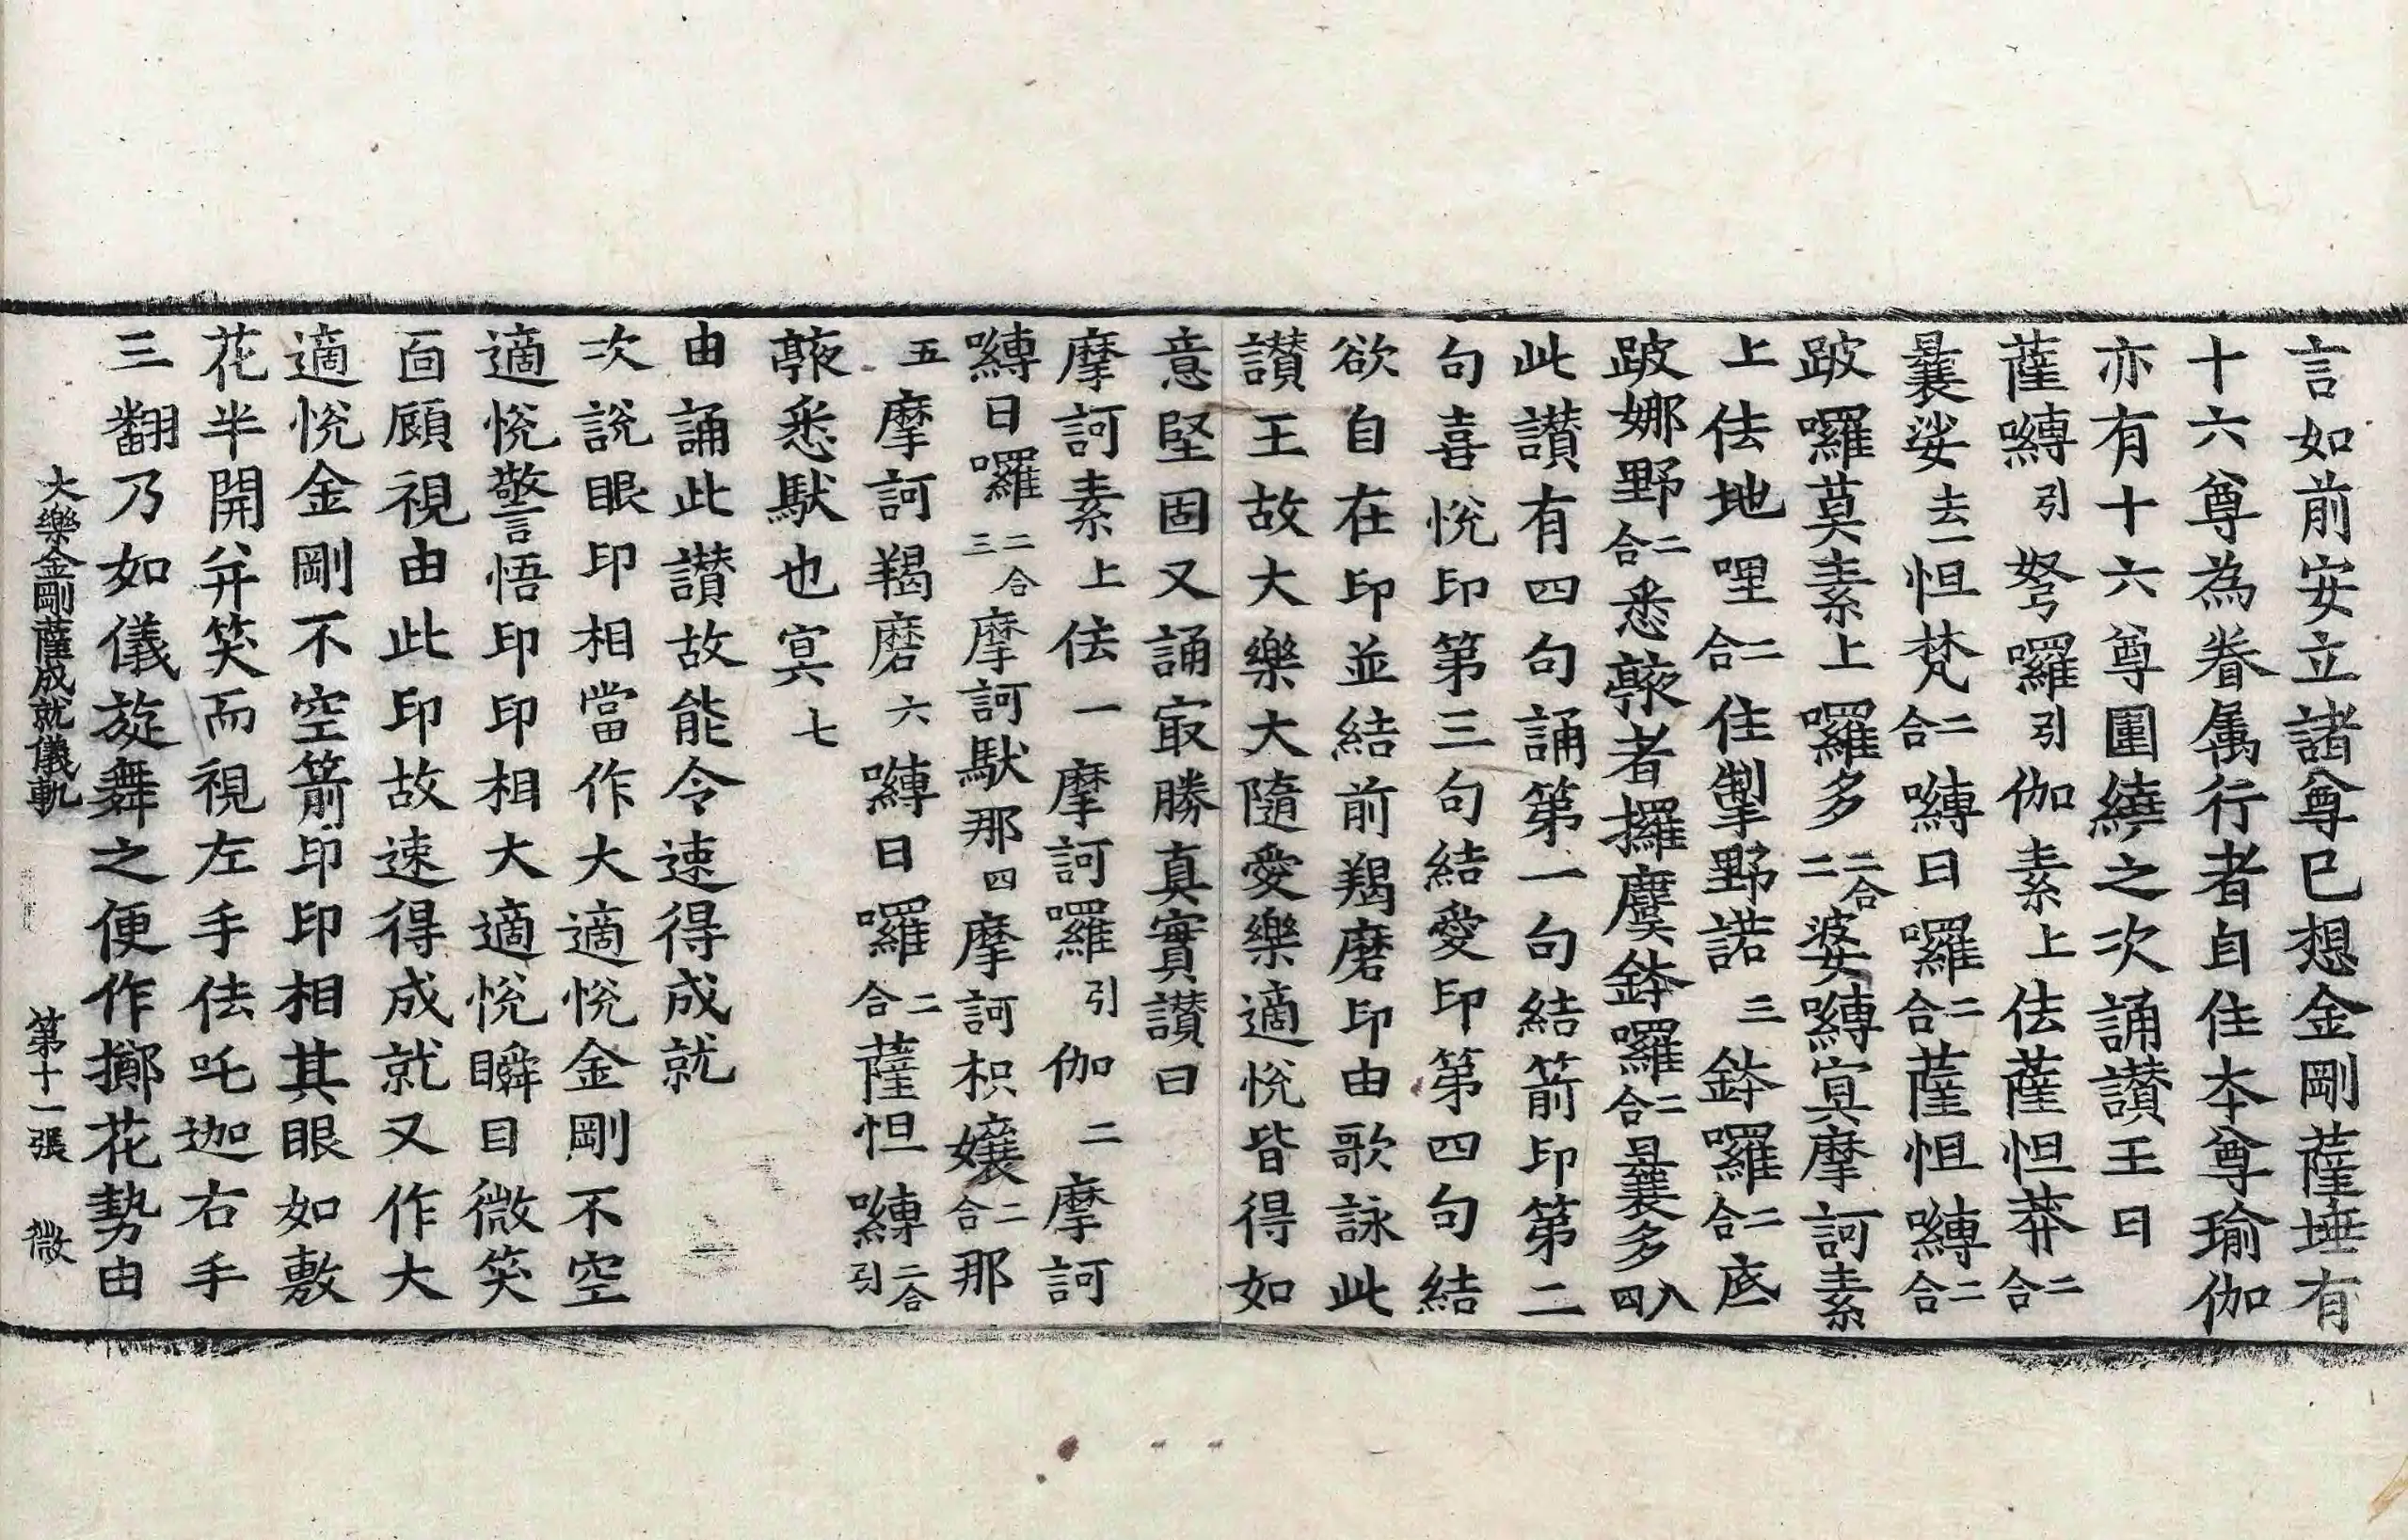 言如前安立諸尊已想金剛薩埵有
十六尊為眷属行者自住本尊瑜伽
亦有十六尊圍繞之次誦讚王曰
薩嚩引努囉引伽素上佉薩怛莽二合
曩娑去一怛梵二合嚩日囉二合薩怛嚩二合
跛囉莫素上囉多二合二婆嚩寘摩訶素
上佉地哩二合住掣野諾三鉢囉二合底
跛娜野二合悉𠶹者攞麌鉢囉二合曩多入四
此讚有四句誦第一句結箭印第二
句喜悅印第三句結愛印第四句結
欲自在印並結前羯磨印由歌詠此
讚王故大樂大隨愛樂適悅皆得如
意堅固又誦㝡勝真實讚曰
摩訶素上佉一摩訶囉引伽二摩訶
嚩日囉二合三摩訶馱那四摩訶枳孃二合那
五摩訶羯磨六嚩日囉二合薩怛嚩二合引
𠶹悉馱也寘七
由誦此讚故能令速得成就
次說眼印相當作大適悅金剛不空
適悅警悟印印相大適悅瞬目微笑
面顧視由此印故速得成就又作大
適悅金剛不空箭印印相其眼如敷
花半開并笑而視左手佉吒迦右手
三翻乃如儀旋舞之便作擲花勢由
大樂金剛薩成就儀軌　第十一張　微